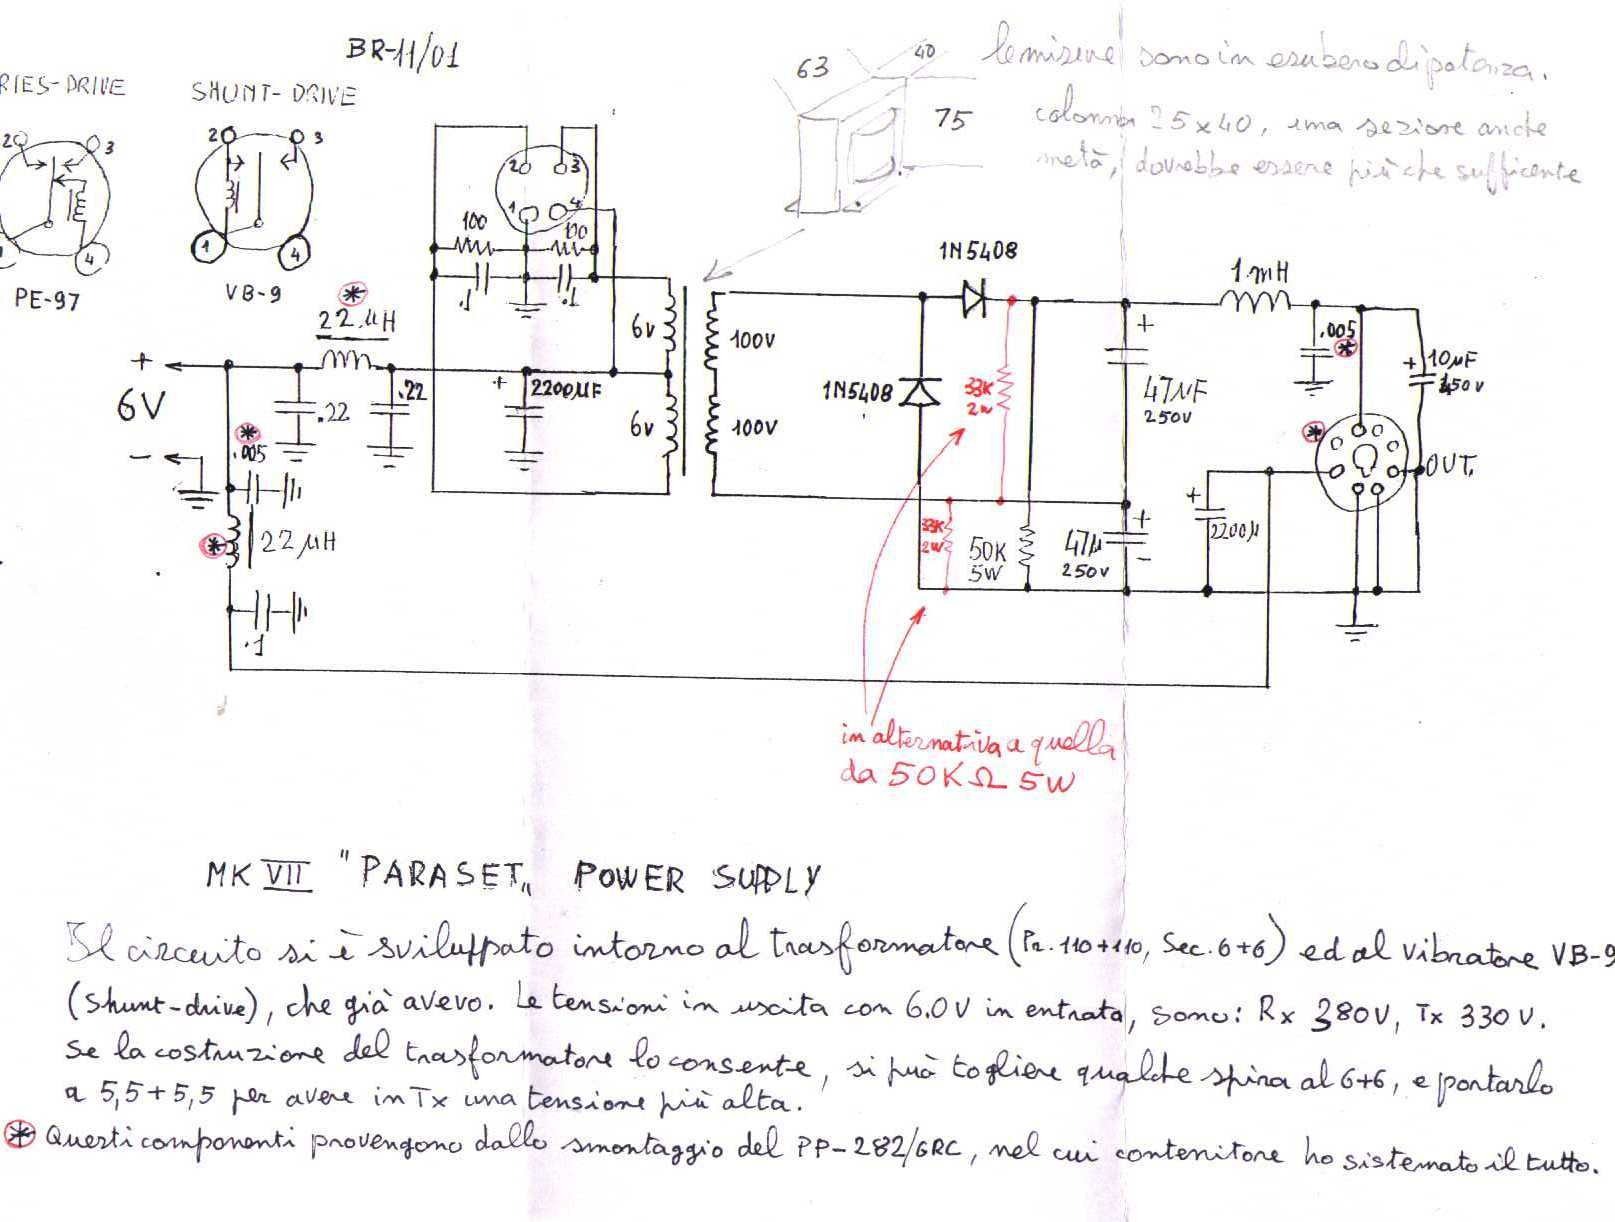 BR-11/01
RIES-DRIVE
SHUNT-DRIVE
2 3
4
PE-97
2 3
1 4
VB-9
2 3
1 4
100 100
.1 .1
63 40
75
le misure sono in esubero di potenza.
colonna 25x40, una sezione anche
metà, dovrebbe essere più che sufficente
+
6V
-
22 µH
.22
.22
+ 2200µF
.005
22 µH
.1
6v
6v
100V
100V
1N5408
1N5408
33K
2W
33K
2W
50K
5W
+
47µF
250V
+
47µ
250V
-
1mH
.005
+ 10µF
450V
OUT.
+
2200µ
in alternativa a quella
da 50KΩ 5W
MK VII "PARASET„ POWER SUPPLY
Il circuito si è sviluppato intorno al trasformatore (Pr. 110+110, Sec. 6+6) ed al vibratore VB-9
(Shunt-drive), che già avevo. Le tensioni in uscita con 6.0V in entrata, sono: Rx 380V, Tx 330V.
Se la costruzione del trasformatore lo consente, si può togliere qualche spira al 6+6, e portarlo
a 5,5+5,5 per avere in Tx una tensione più alta.
* Questi componenti provengono dallo smontaggio del PP-282/GRC, nel cui contenitore ho sistemato il tutto.